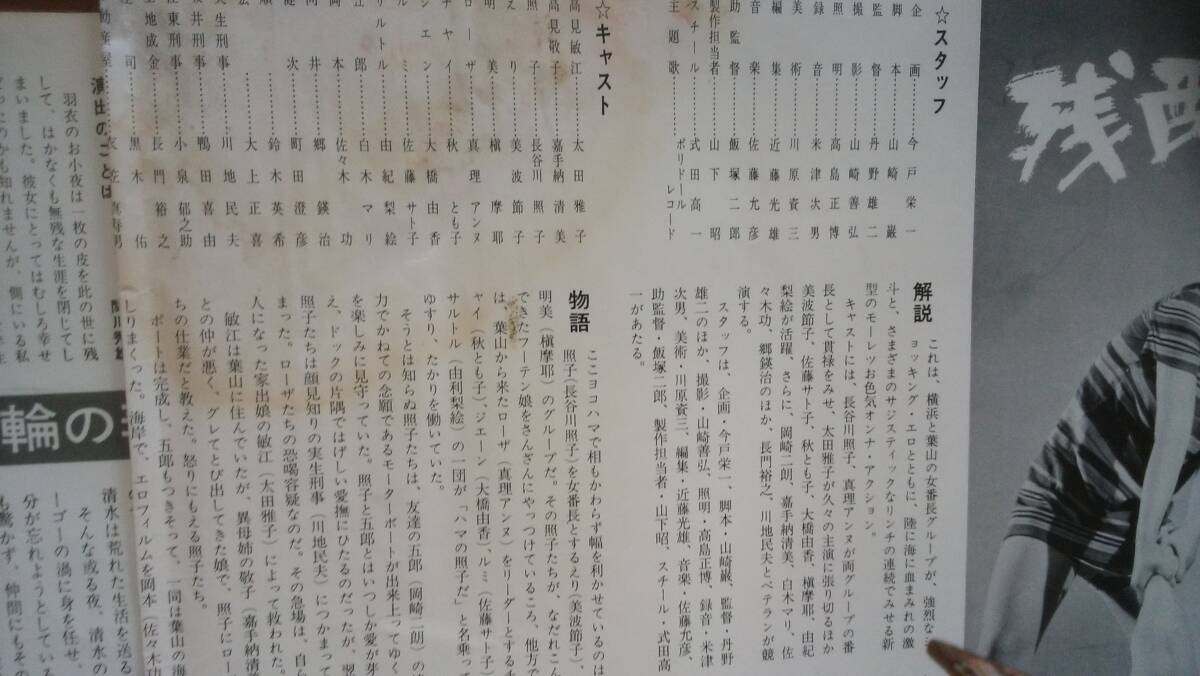 残酷
☆スタッフ
企画………今戸栄一
脚本………山崎巌
監督………丹野雄二
撮影………山崎善弘
照明………高島正博
録音………米津次男
美術………川原資三
編集………近藤光雄
音楽………佐藤允彦
助監督………飯塚二郎
製作担当者………山下昭
スチール………式田高一
主題歌………ポリドールレコード
☆キャスト
高見敏江………太田雅子
高見敬子………嘉手納清美
照子………長谷川照子
えり………美波節子
明美………槇摩耶
ローザ………真理アンヌ
チャイ………秋とも子
ジェーン………大橋由香
ルミ………佐藤サト子
サルトル………由紀梨絵
郎………白木マリ
岡本………佐々木功
井………郷鍈治
次………町田澄彦
鈴木英希
大上正喜
生刑事………川地民夫
井刑事………鴨田喜由
東刑事………小泉郁之助
地成金………長門裕之
司………黒木佑
動産屋………衣笠真寿男
解説
これは、横浜と葉山の女番長グループが、強烈な
ョッキング・エロとともに、陸に海に血まみれの激
斗と、さまざまのサジスティックなリンチの連続でみせる新
型のモーレツお色気オンナ・アクション。
キャストには、長谷川照子、真理アンヌが両グループの番
長として貫禄をみせ、太田雅子が久々の主演に張り切るほか
美波節子、佐藤サト子、秋とも子、大橋由香、槇摩耶、由紀
梨絵が活躍、さらに、岡崎二朗、嘉手納清美、白木マリ、佐
々木功、郷鍈治のほか、長門裕之、川地民夫とベテランが競
演する。
スタッフは、企画・今戸栄一、脚本・山崎巌、監督・丹野
雄二のほか、撮影・山崎善弘、照明・高島正博、録音・米津
次男、美術・川原資三、編集・近藤光雄、音楽・佐藤允彦、
助監督・飯塚二郎、製作担当者・山下昭、スチール・式田高
一があたる。
物語
ここヨコハマで相もかわらず幅を利かせているのは
照子（長谷川照子）を女番長とするえり（美波節子）、
明美（槇摩耶）のグループだ。その照子たちが、なだれこん
できたフーテン娘をさんざんにやっつけているころ、他方で
は、葉山から来たローザ（真理アンヌ）をリーダーとするチ
ャイ（秋とも子）、ジェーン（大橋由香）、ルミ（佐藤サト子）
サルトル（由利梨絵）の一団が「ハマの照子だ」と名乗って
ゆすり、たかりを働いていた。
そうとは知らぬ照子たちは、友達の五郎（岡崎二朗）の
力でかねての念願であるモーターボートが出来上ってゆく
を楽しみに見守っていた。照子と五郎とはいつしか愛が芽
え、ドックの片隅ではげしい愛撫にひたるのだったが、翌
照子たちは顔見知りの実生刑事（川地民夫）につかまって
まった。ローザたちの恐喝容疑なのだ。その急場は、自ら
人になった家出娘の敏江（太田雅子）によって救われた。
敏江は葉山に住んでいたが、異母姉の敬子（嘉手納清
との仲が悪く、グレてとび出してきた娘で、照子にロー
ちの仕業だと教えた。怒りにもえる照子たち。
ボートは完成し、五郎もつきそって、一同は葉山の海
しりまくった。海岸で、エロフィルムを岡本（佐々木功
演出のことば
羽衣のお小夜は一枚の皮を此の世に残
して、はかなくも無残な生涯を閉じてし
まいました。彼女にとってはむしろ幸せ
だったのかも知れませんが、側にいる私
輪の
清水は荒れた生活を送る
そんな或る夜。清水の
ーゴーの渦に身を任せ、
分が忘れようとしている
も驚かず、仲間にもその